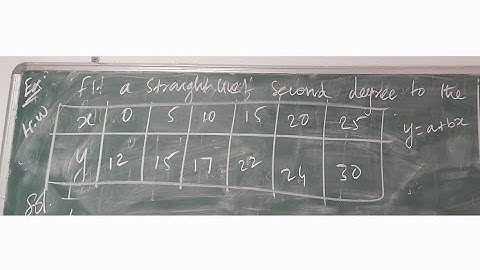 Ex: Fit a straight line of second degree to the
H.W x 0 5 10 15 20 25 y=a+bx
y 12 15 17 22 24 30
Sol.